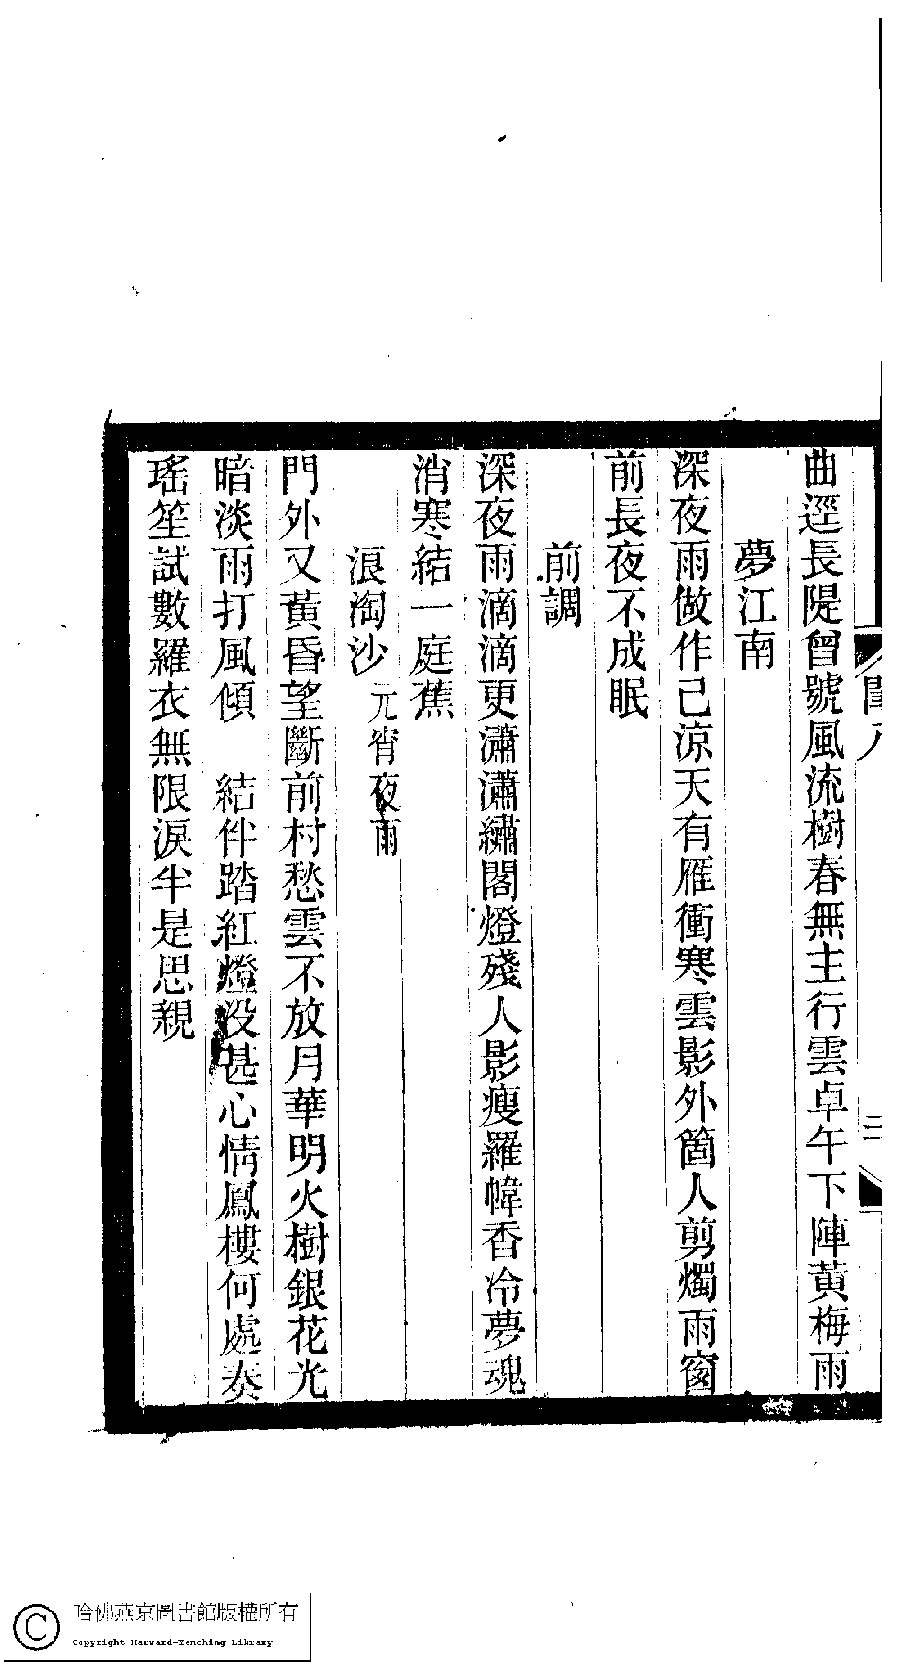 曲逕長隄曾號風流樹春無主行雲卓午下陣黃梅雨
夢江南
深夜雨做作己涼天有雁衝寒雲影外箇人剪燭雨窗
前長夜不成眠
前調
深夜雨滴滴更瀟瀟繡閣燈殘人影瘦羅幃香冷夢魂
消寒結一庭蕉
浪淘沙 元宵夜雨
門外又黃昏望斷前村愁雲不放月華明火樹銀花光
暗淡雨打風傾 結伴踏紅燈没甚心情鳳樓何處奏
瑤笙試數羅衣無限淚半是思親
哈佛燕京圖書館版權所有
Copyright Harvard-Yenching Library